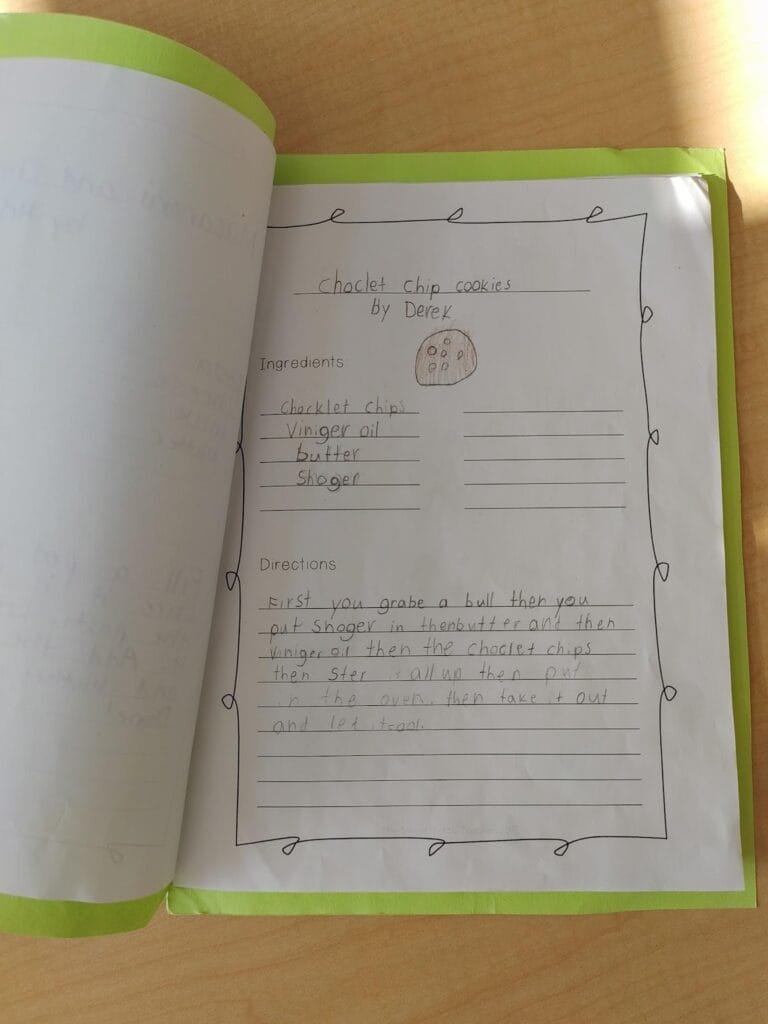 Choclet chip cookies
by Derek
Ingredients
Chocklet chips
Viniger oil
butter
Shoger
Directions
First you grabe a bull then you
put Shoger in thenbutter and then
viniger oil then the choclet chips
then Ster it all up then put
in the oven. then take it out
and let it cool.